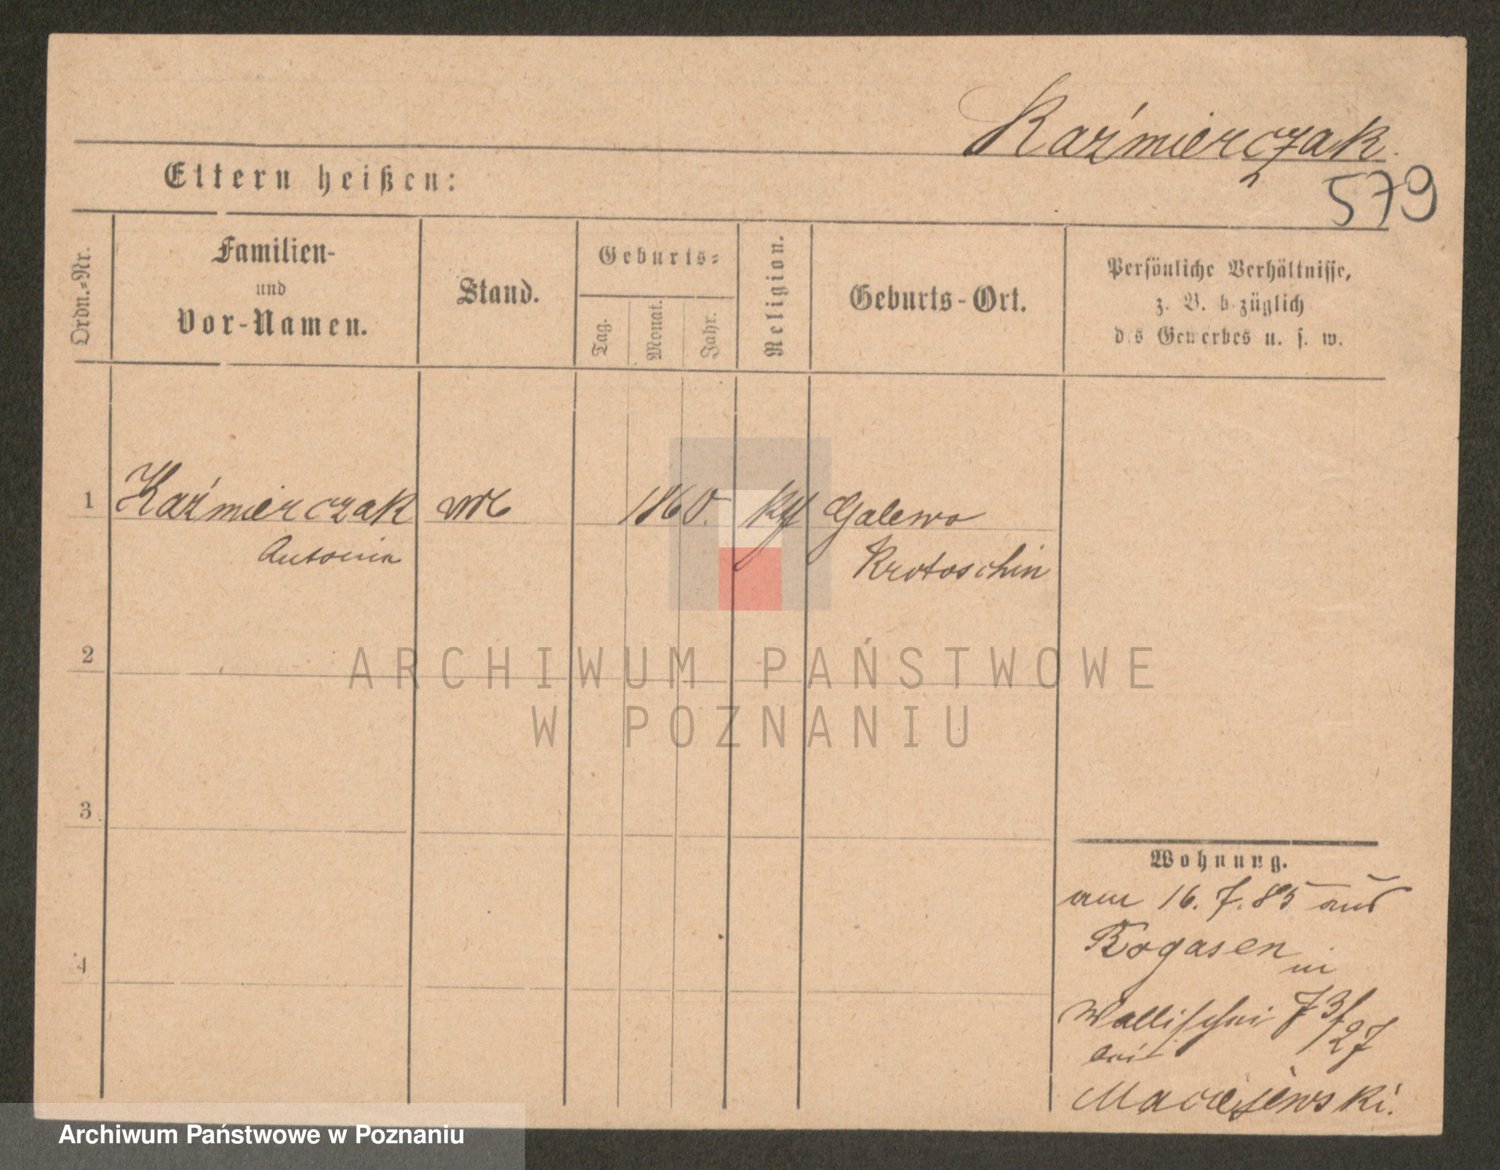 Kaźmierczak
579
Eltern heißen:
Ordn.-Nr.
Familien-
und
Vor-Namen.
Stand.
Geburts-
Tag.
Monat.
Jahr.
Religion.
Geburts-Ort.
Persönliche Verhältnisse,
z. B. bezüglich
des Gewerbes u. s. w.
1 Kaźmierczak 1860. Galewo
Antonia Krotoschin
2
3
4
Wohnung.
am 16.7.85 aus
Rogasen in
Wallischei 73/27
bei
Maciejewski.
ARCHIWUM PAŃSTWOWE
W POZNANIU
Archiwum Państwowe w Poznaniu